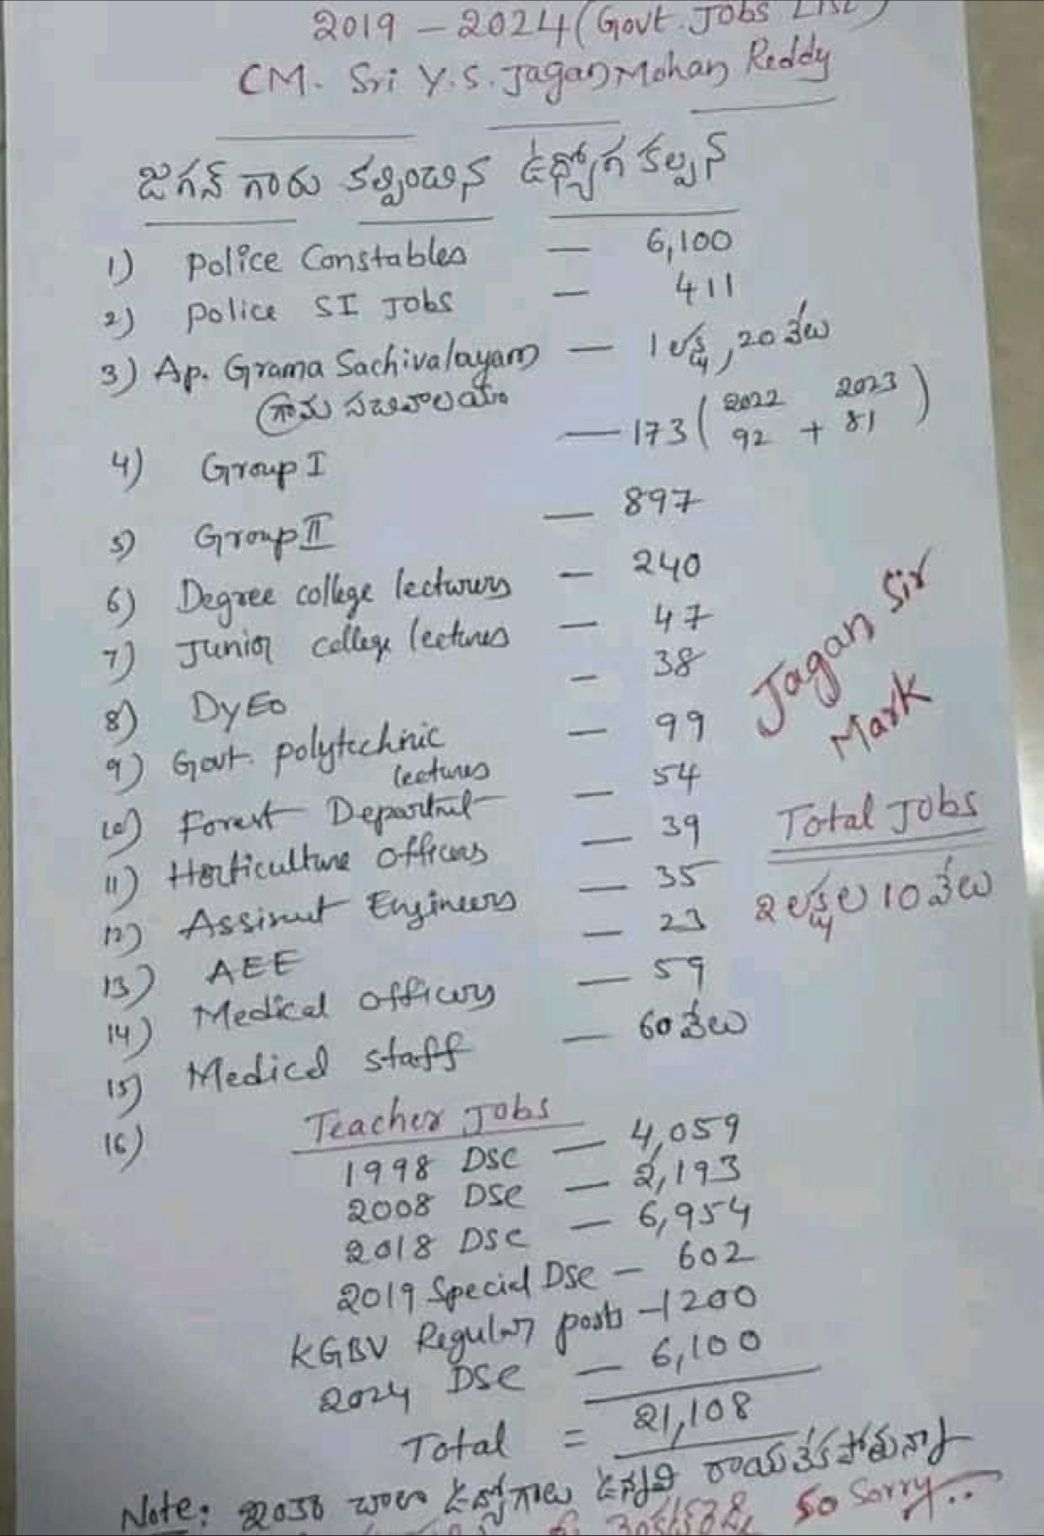 2019 - 2024 (Govt. Jobs List)
CM. Sri Y.S. Jagan Mohan Reddy
జగన్ గారు కల్పించిన ఉద్యోగ కల్పన
1) Police Constables - 6,100
2) Police SI Jobs - 411
3) Ap. Grama Sachivalayam - 1 లక్ష, 20 వేలు
గ్రామ సచివాలయం
4) Group I - 173 (2022 92 + 2023 81)
5) Group II - 897
6) Degree college lecturers - 240
7) Junior college lectures - 47
8) DyEo - 38
9) Govt. polytechnic lectures - 99
10) Forest Department - 54
11) Horticulture officers - 39
12) Assinut Engineers - 35
13) AEE - 23
14) Medical officers - 59
15) Medical staff - 60 వేలు
Jagan Sir
Mark
Total Jobs
2 లక్షల 10 వేలు
16) Teacher Jobs
1998 DSC - 4,059
2008 DSC - 2,193
2018 DSC - 6,954
2019 Special DSC - 602
KGBV Regular posts - 1200
2024 DSC - 6,100
Total = 21,108
Note: ఇంకా చాలా ఉద్యోగాలు ఉన్నవి రాయలేకపోతున్నా
So Sorry..